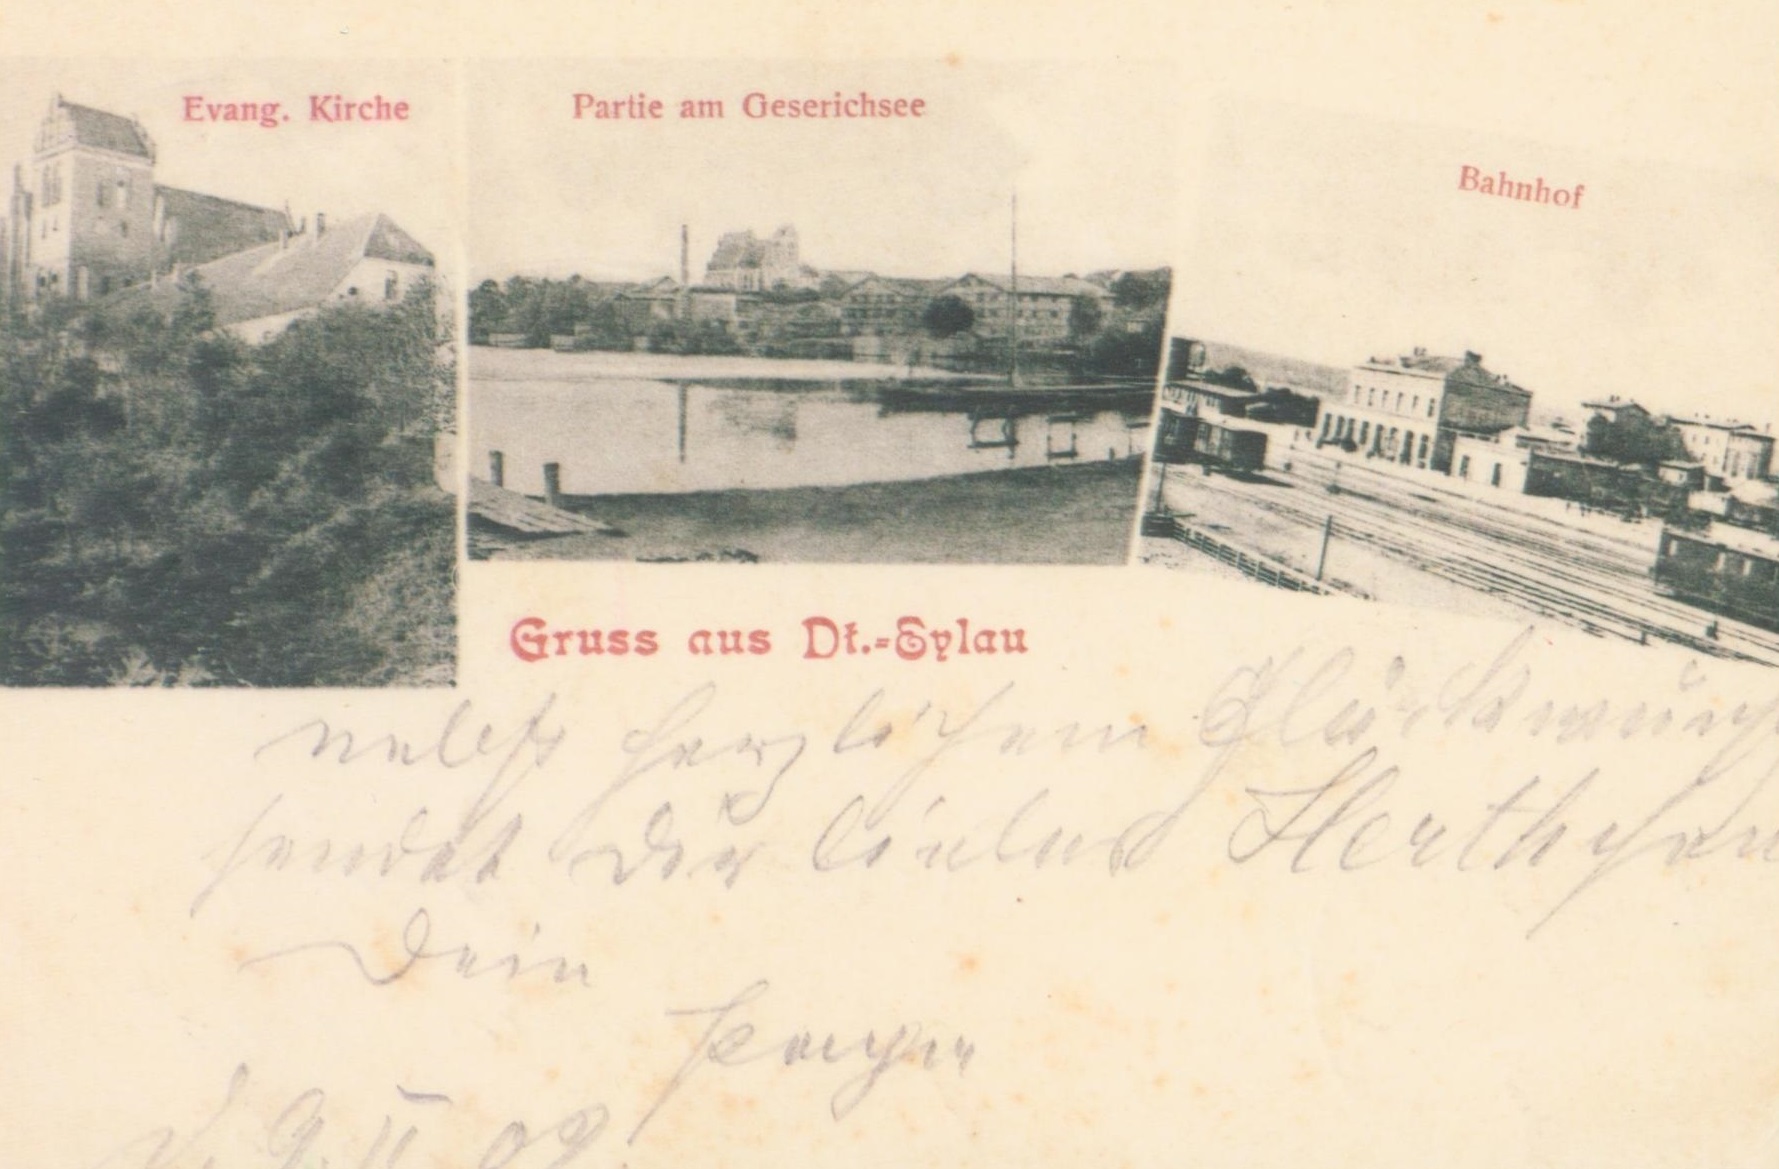 Evang. Kirche
Partie am Geserichsee
Bahnhof
Gruss aus Dt.-Eylau
nebst herzlichem Glückwunsch
sendet Dir liebes Herthchen
Dein